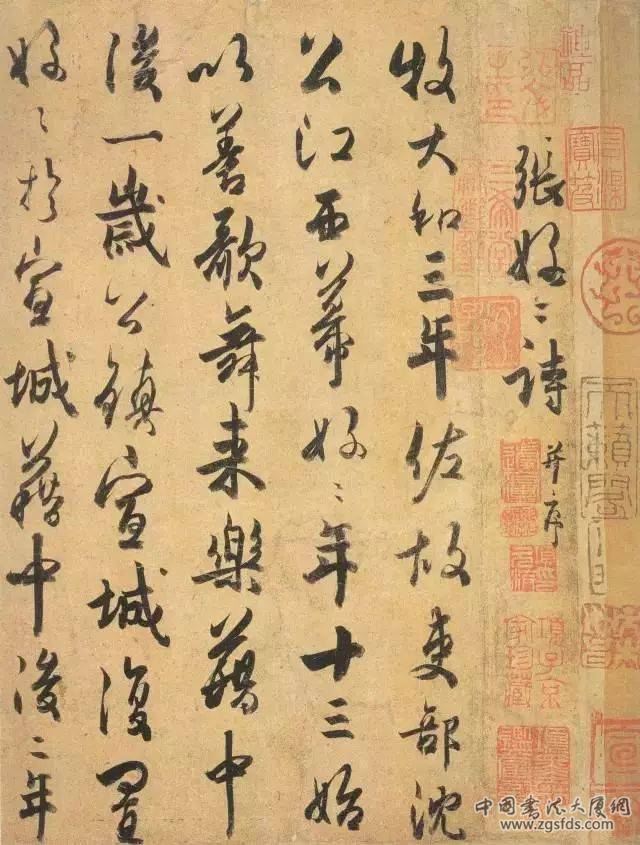 張好〻詩并序
牧大和三年佐故吏部沈
公江西幕好〻年十三始
以善歌舞来樂籍中
後一歲公鎮宣城復置
好〻於宣城籍中後二年
項子京
家珍藏
天籟閣
中国书法大厦网
www.zgsfds.com